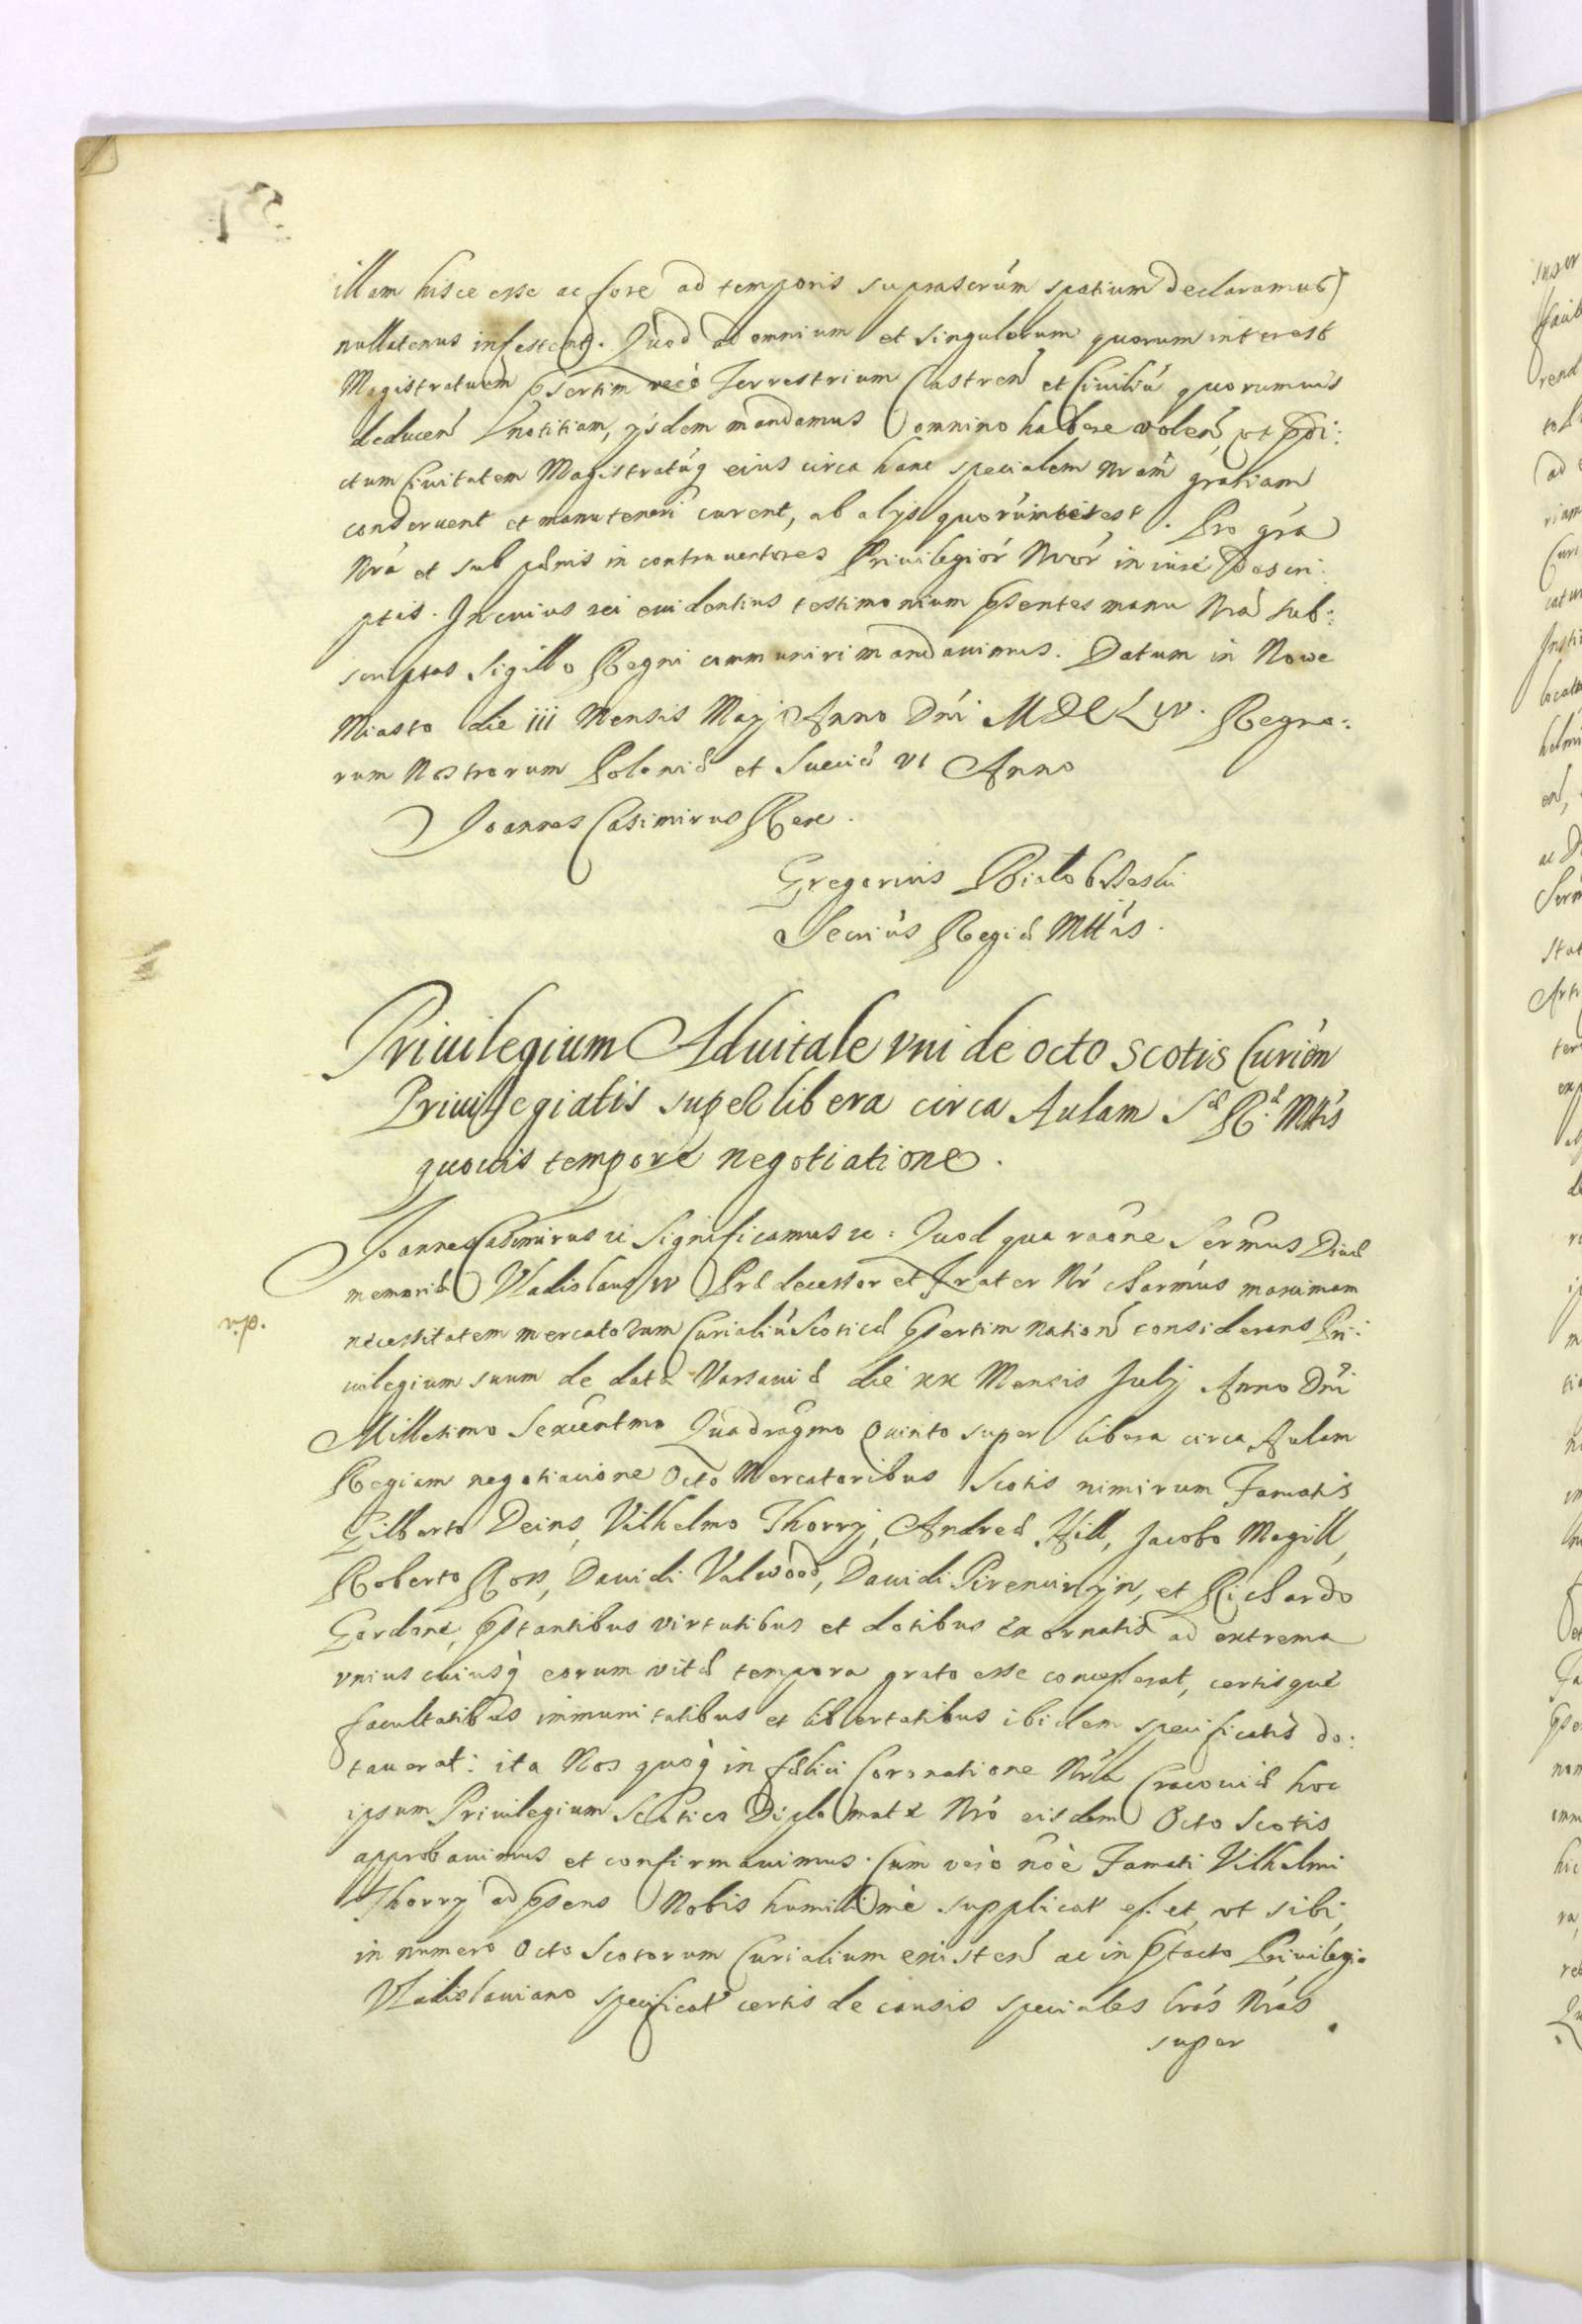 illam hisce esse ac fore ad temporis suprascrúm spatium declaramus)
nullatenus infestent. Quod ad omnium et singulorum quorum interest
Magistratuum psertim vero Terrestrium Castren et Ciuiliú quorumuis
deducen notitiam, ijsdem mandamus omnino habere volen, vt pdi:
ctam Ciuitatem Magistratúq eius circa hanc specialem Nram gratiam
conseruent et manuteneri curent, ab alijs quorúm interest. Pro gra
Nrá et sub pænis in contrauentores Priuilegiór Nrór in iure descri:
ptis. In cuius rei euidentius testimonium psentes manu Nrá sub:
scriptas Sigillo Regni communiri mandauimus. Datum in Nowe
Miasto die iii Mensis Maij Anno Dni MDCLIV. Regno:
rum Nostrorum Poloniæ et Sueciæ VI Anno
Joannes Casimirus Rex.
Gregorius
Secriús Regiæ Mttis.
Priuilegium Aduitale vni de octo scotis Curién
Priuilegiatis super libera circa Aulam Sæ Ræ Mttis
quouis tempore negotiatione.
Joannes Casimirus &c Significamus &c: Quod qua raone Sermus Diuæ
memoriæ Vladislaus IV Prædecessor et Frater Nr charmus maximam
v.p.
necessitatem mercatorum Curialiú Scoticæ psertim nation considerans Pri:
uilegium suum de data Varsauiæ die xx Mensis Julij Anno Dni
Millesimo Sexcentmo Quadragmo Quinto super libera circa Aulam
Regiam negotiatione Octo Mercatoribus Scotis nimirum Famatis
Gilberto Deins, Vilhelmo Thorry, Andreæ Hill, Jacobo Magill,
Roberto Ross, Dauidi Valwood, Dauidi et Richardo
Gordone, pstantibus virtutibus et dotibus exornatis ad extrema
vnius cuiusq eorum vitæ tempora grato esse concesserat, certisque
facultatibus immunitatibus et libertatibus ibidem specificatis do:
tauerat: ita Nos quoq in fælici Coronatione Nrá Cracouiæ hoc
ipsum Priuilegium Scotica Diplomate Nró eisdem Octo Scotis
approbauimus et confirmauimus. Cum veró nóe Famati Vilhelmi
Thorry ad psens Nobis humillimé supplicat esset, vt sibi,
in numero Octo Scotorum Curialium existen ac in pfacto Priuilegio
Vladislauiano specificat certis de causis speciales lrás Nrás
super